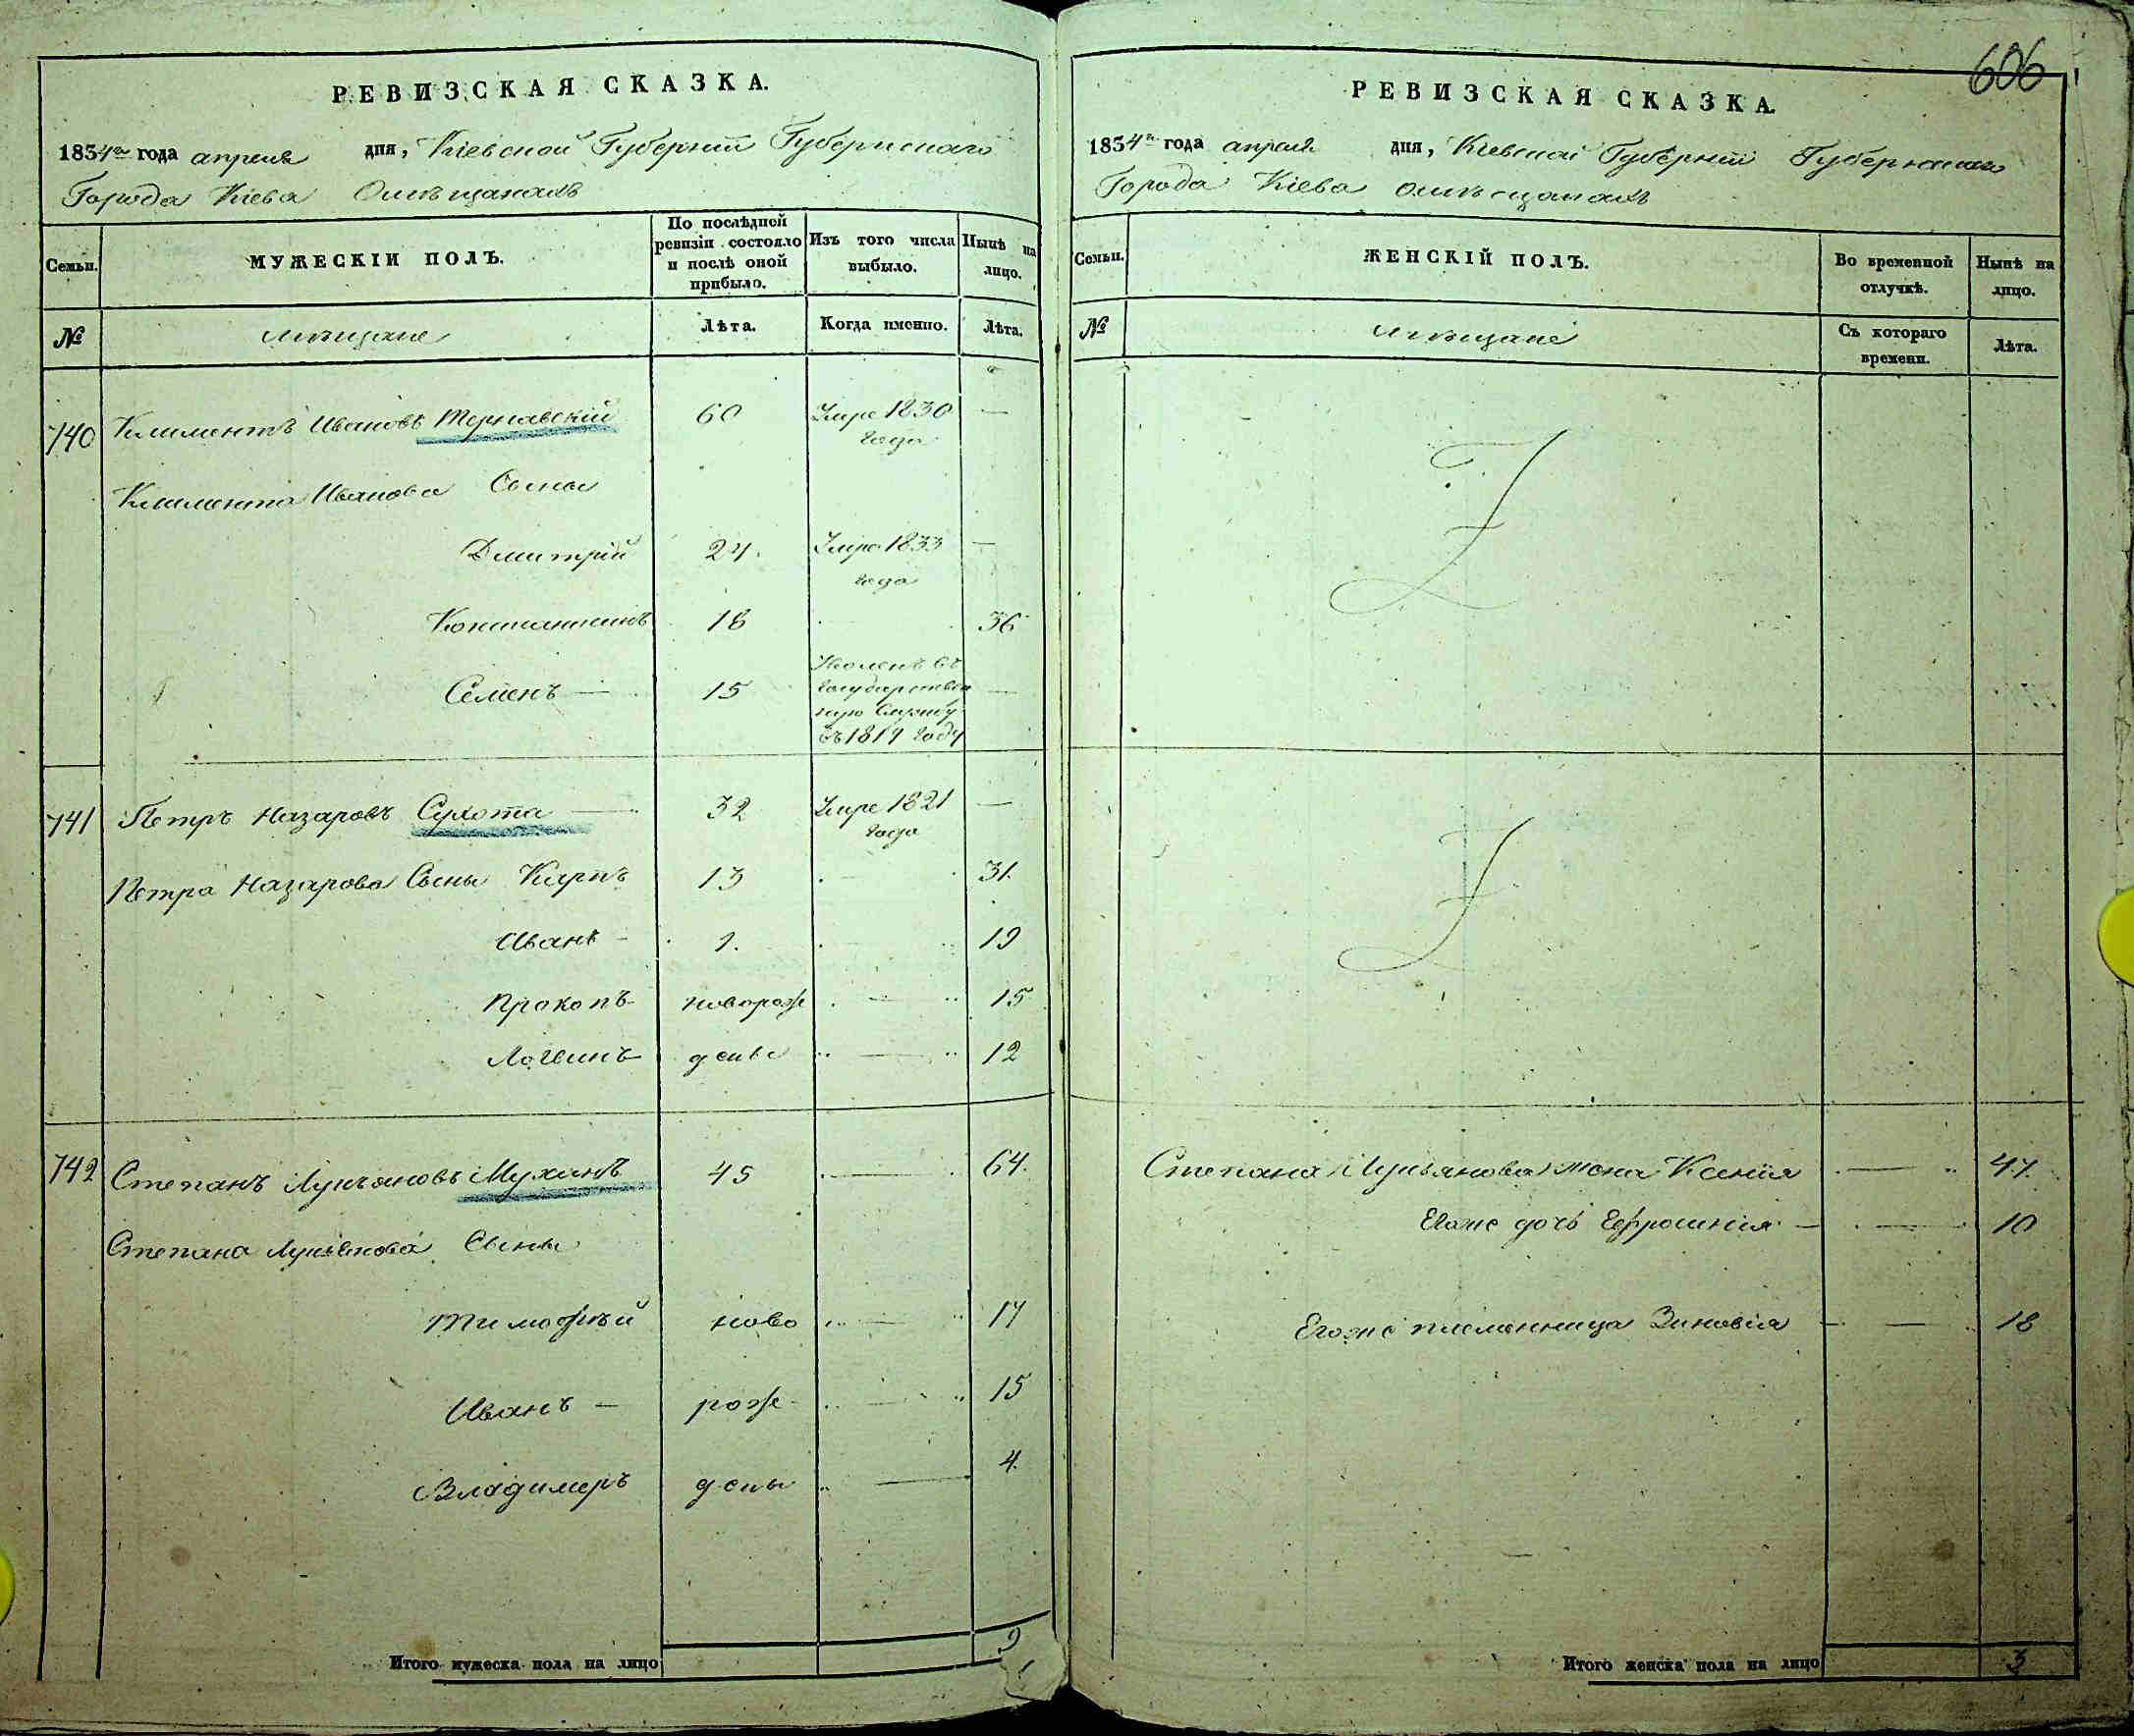 РЕВИЗСКАЯ СКАЗКА.
1834го года апреля дня, Кіевской Губерніи Губернскаго
Города Кіева Омѣщанахъ
Семьи.
МУЖЕСКІЙ ПОЛЪ.
По послѣдней ревизіи состояло и послѣ оной прибыло.
Изъ того числа выбыло.
Нынѣ на лицо.
№
мѣщане
Лѣта.
Когда именно.
Лѣта.
740 Климентъ Ивановъ Тернавскій 60 Умре 1830 года —
Климента Иванова Сыны
Дмитрій 24. Умре 1833 года —
Константинъ 18 36
Семенъ — 15 Государствен ную Службу въ 1819 году —
741 Петръ Назаровъ Сухота — 32 Умре 1821 года —
Петра Назарова Сыны Карпъ 13 31.
Иванъ — 1. 19
Прокопъ новорож — 15
Логвинъ дены — 12
742 Степанъ Лукъяновъ Муханъ 45 — 64.
Степана Лукъянова Сыны
Тимофѣй ново — 17
Иванъ — рож — 15
Владимеръ дены — 4.
Итого мужеска пола на лицо 9
606
РЕВИЗСКАЯ СКАЗКА.
1834го года апреля дня, Кіевской Губерніи Губернскаго
Города Кіева омѣщанахъ
Семьи.
ЖЕНСКІЙ ПОЛЪ.
Во временной отлучкѣ.
Нынѣ на лицо.
№
мѣщане
Съ котораго времени.
Лѣта.
Степана Лукьянова жена Ксенія — 47.
Егоже дочь Ефросинія — — 10
Егоже племенница Зиновія — — 18
Итого женска пола на лицо 3